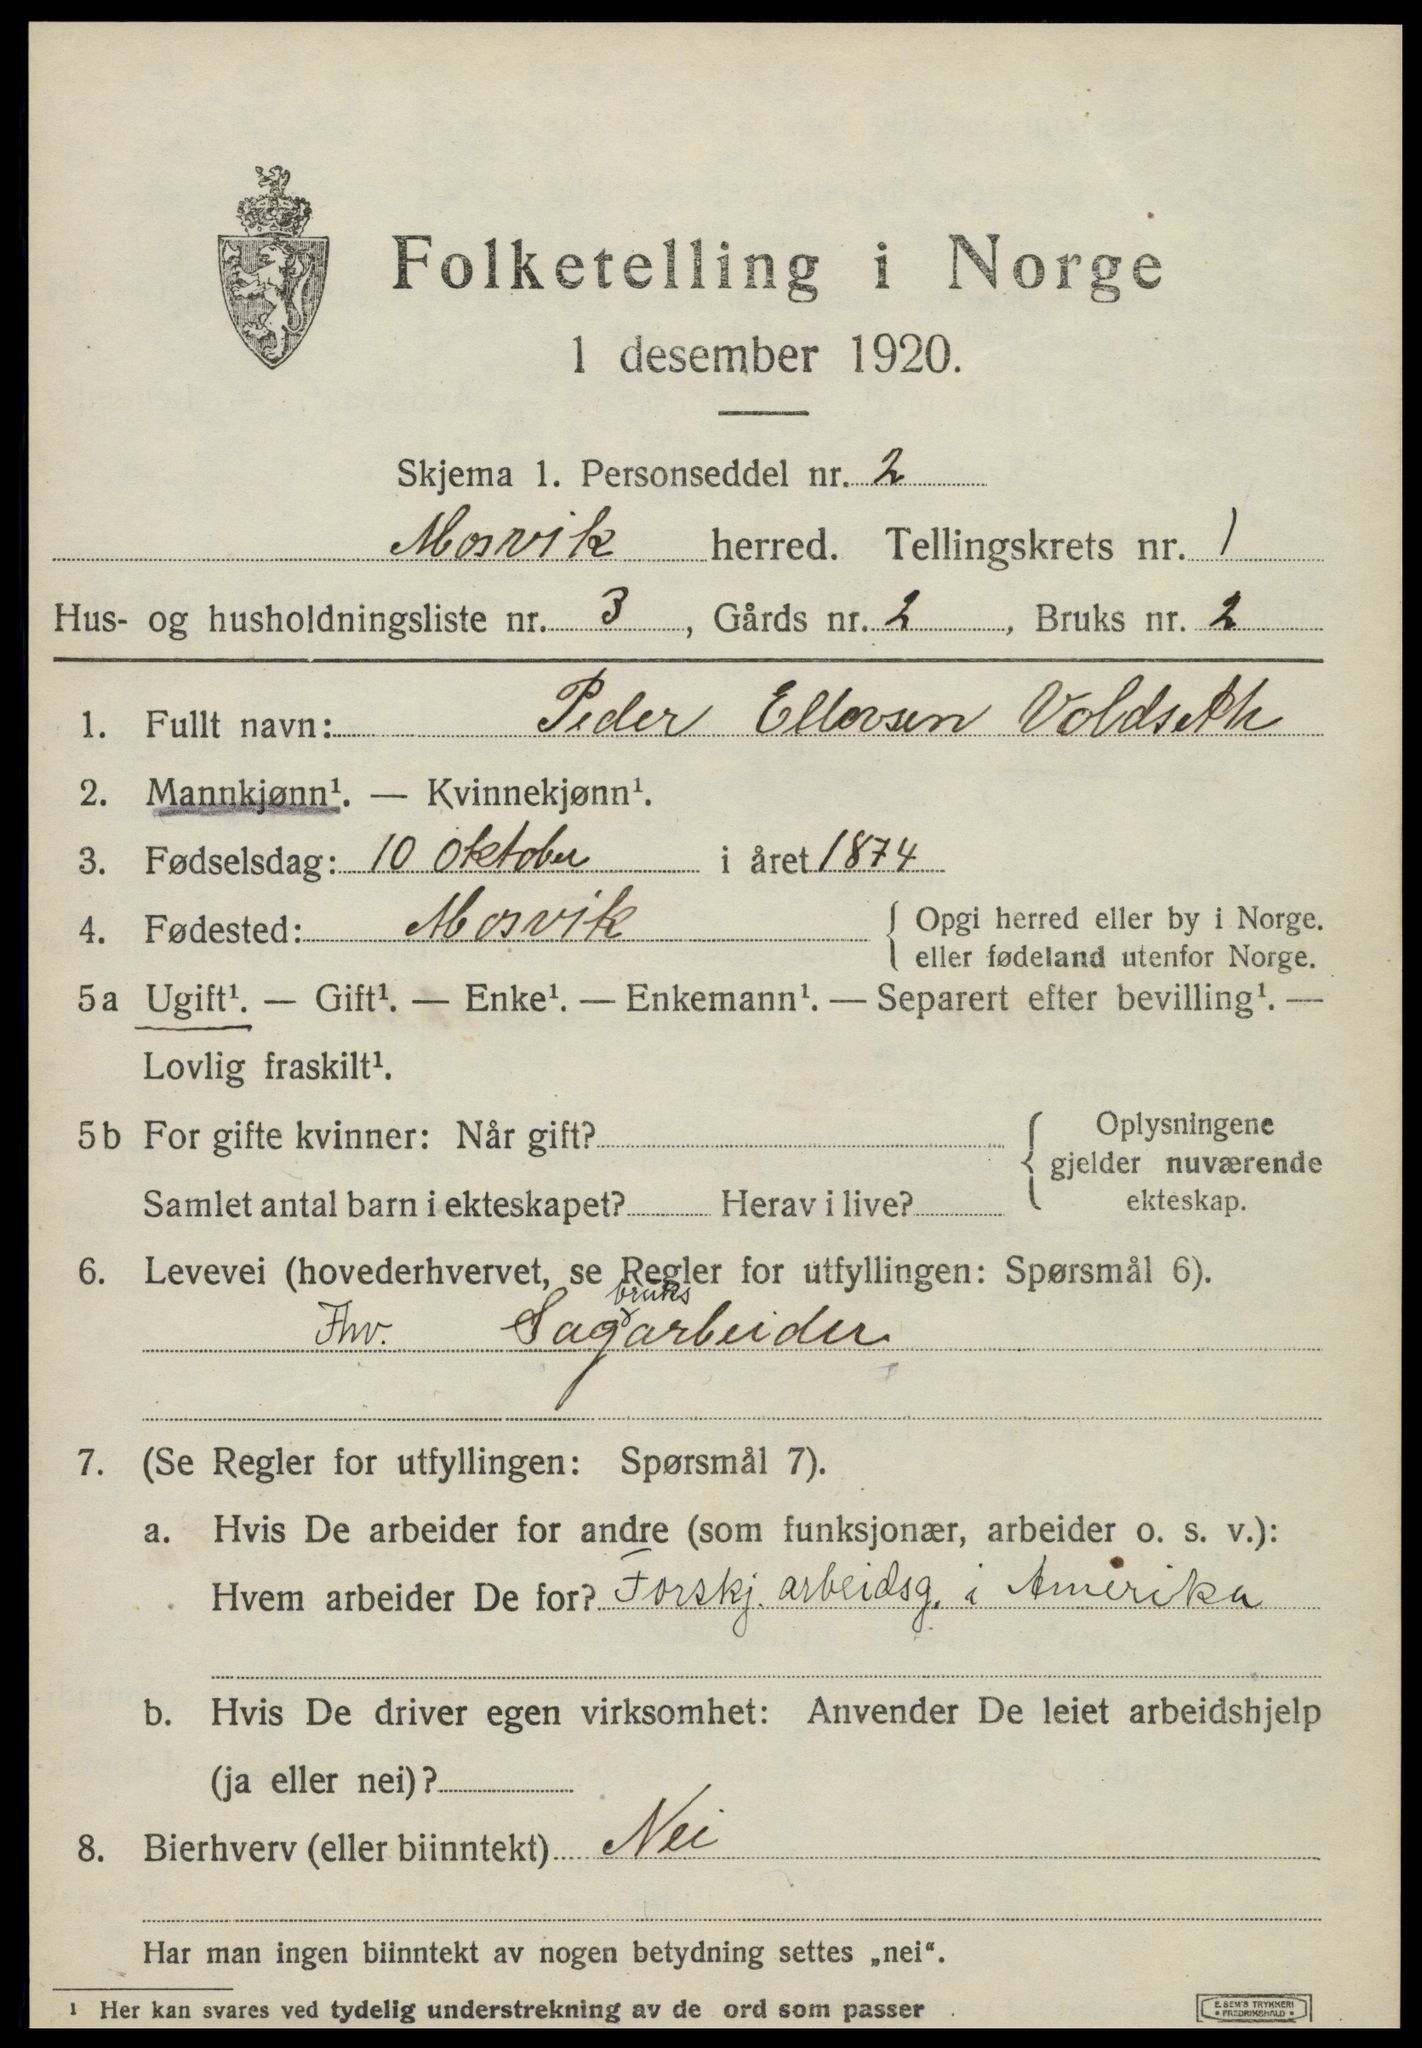 Folketelling i Norge
1 desember 1920.
Skjema 1. Personseddel nr. 2
Mosvik herred. Tellingskrets nr. 1
Hus- og husholdningsliste nr. 3, Gårds nr. 2, Bruks nr. 2
1. Fullt navn: Peder Ellevsen Voldseth
2. Mannkjønn¹. — Kvinnekjønn¹.
3. Fødselsdag: 10 oktober i året 1874
4. Fødested: Mosvik { Opgi herred eller by i Norge.
eller fødeland utenfor Norge.
5a Ugift¹. — Gift¹. — Enke¹. — Enkemann¹. — Separert efter bevilling¹. —
Lovlig fraskilt¹.
5b For gifte kvinner: Når gift? { Oplysningene
gjelder nuværende
Samlet antal barn i ekteskapet? Herav i live? ekteskap.
6. Levevei (hovederhvervet, se Regler for utfyllingen: Spørsmål 6).
bruks
Fhv. Sagarbeider
7. (Se Regler for utfyllingen: Spørsmål 7).
a. Hvis De arbeider for andre (som funksjonær, arbeider o. s. v.):
Hvem arbeider De for? Forskj. arbeidsg. i Amerika
b. Hvis De driver egen virksomhet: Anvender De leiet arbeidshjelp
(ja eller nei)?
8. Bierhverv (eller biinntekt) Nei
Har man ingen biinntekt av nogen betydning settes „nei“.
1 Her kan svares ved tydelig understrekning av de ord som passer
E. SEM'S TRYKKERI
• FREDRIKSHALD •